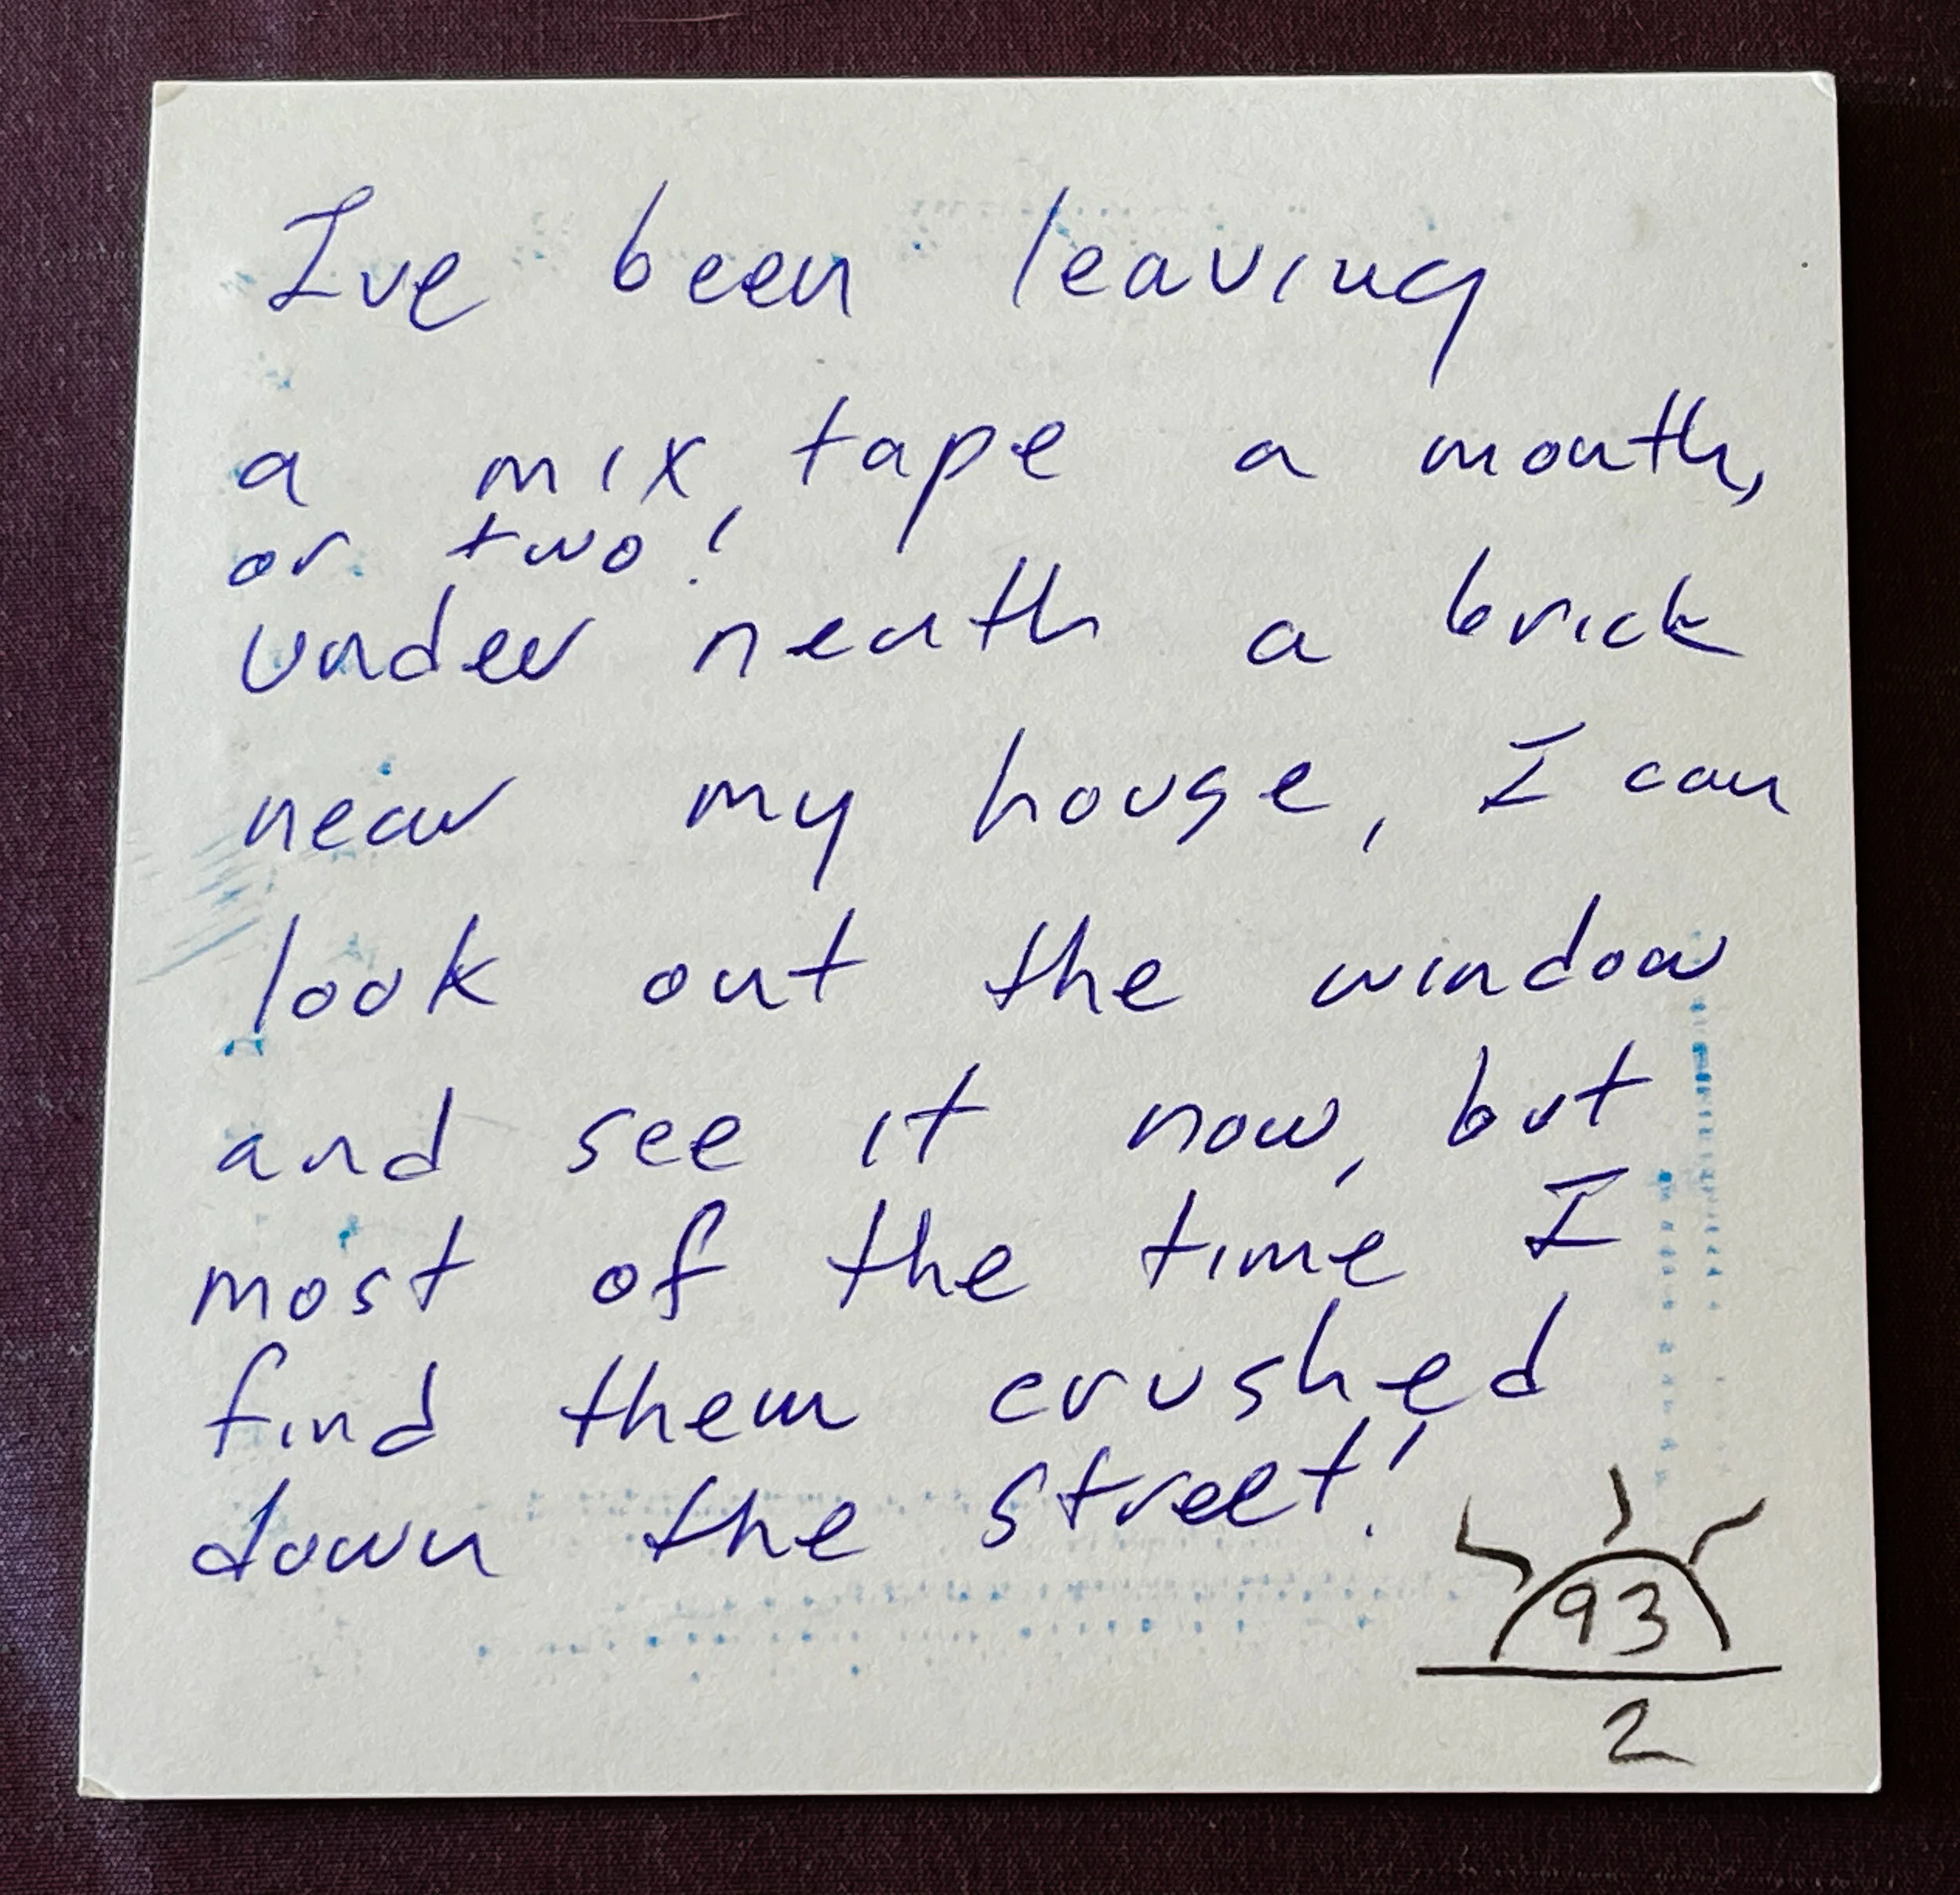 Ive been leaving
a mix tape a month,
or two!
under neath a brick
near my house, I can
look out the window
and see it now, but
most of the time I
find them crushed
down the street!
93
2